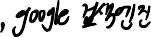 , google 검색엔진